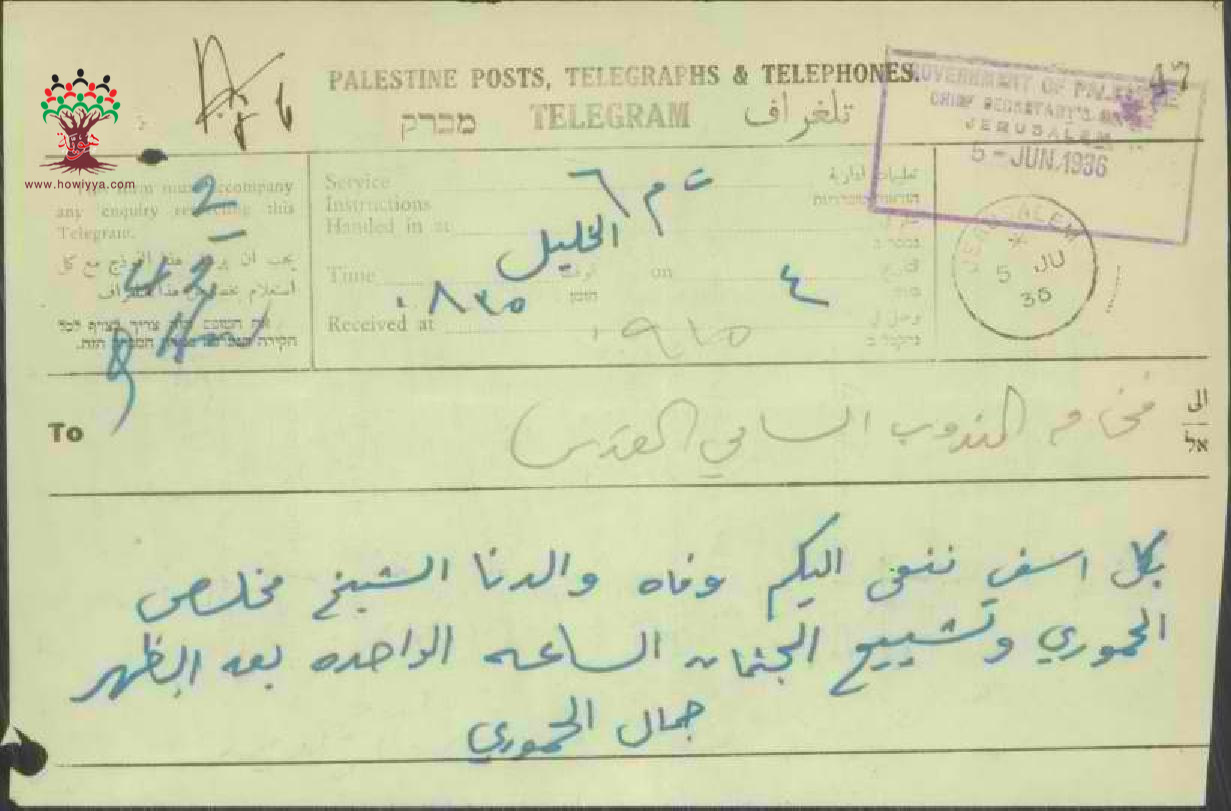 47
PALESTINE POSTS, TELEGRAPHS & TELEPHONES.
מברק TELEGRAM تلغراف
GOVERNMENT OF PALESTINE
CHIEF SECRETARY'S
JERUSALEM
5 - JUN. 1936
www.howiyya.com
This form must accompany
any enquiry respecting this
Telegram.
2
يجب ان هذا النموذج مع كل
استعلام هذا التلغراف
42
Service
Instructions
Handed in at
الخليل
Time
الوقت
הזמן
on
٤
٠٨٣٥
Received at
٠٩١٥
تعليمات ادارية
التاريخ
وصل في
נתקבל ב
JERUSALEM
5 JU
36
To
فخامة المندوب السامي القدس
الى
אל
بكل اسف ننعى اليكم وفاه والدنا الشيخ مخلص
الحموري وتشييع الجثمان الساعه الواحده بعد الظهر
جمال الحموري